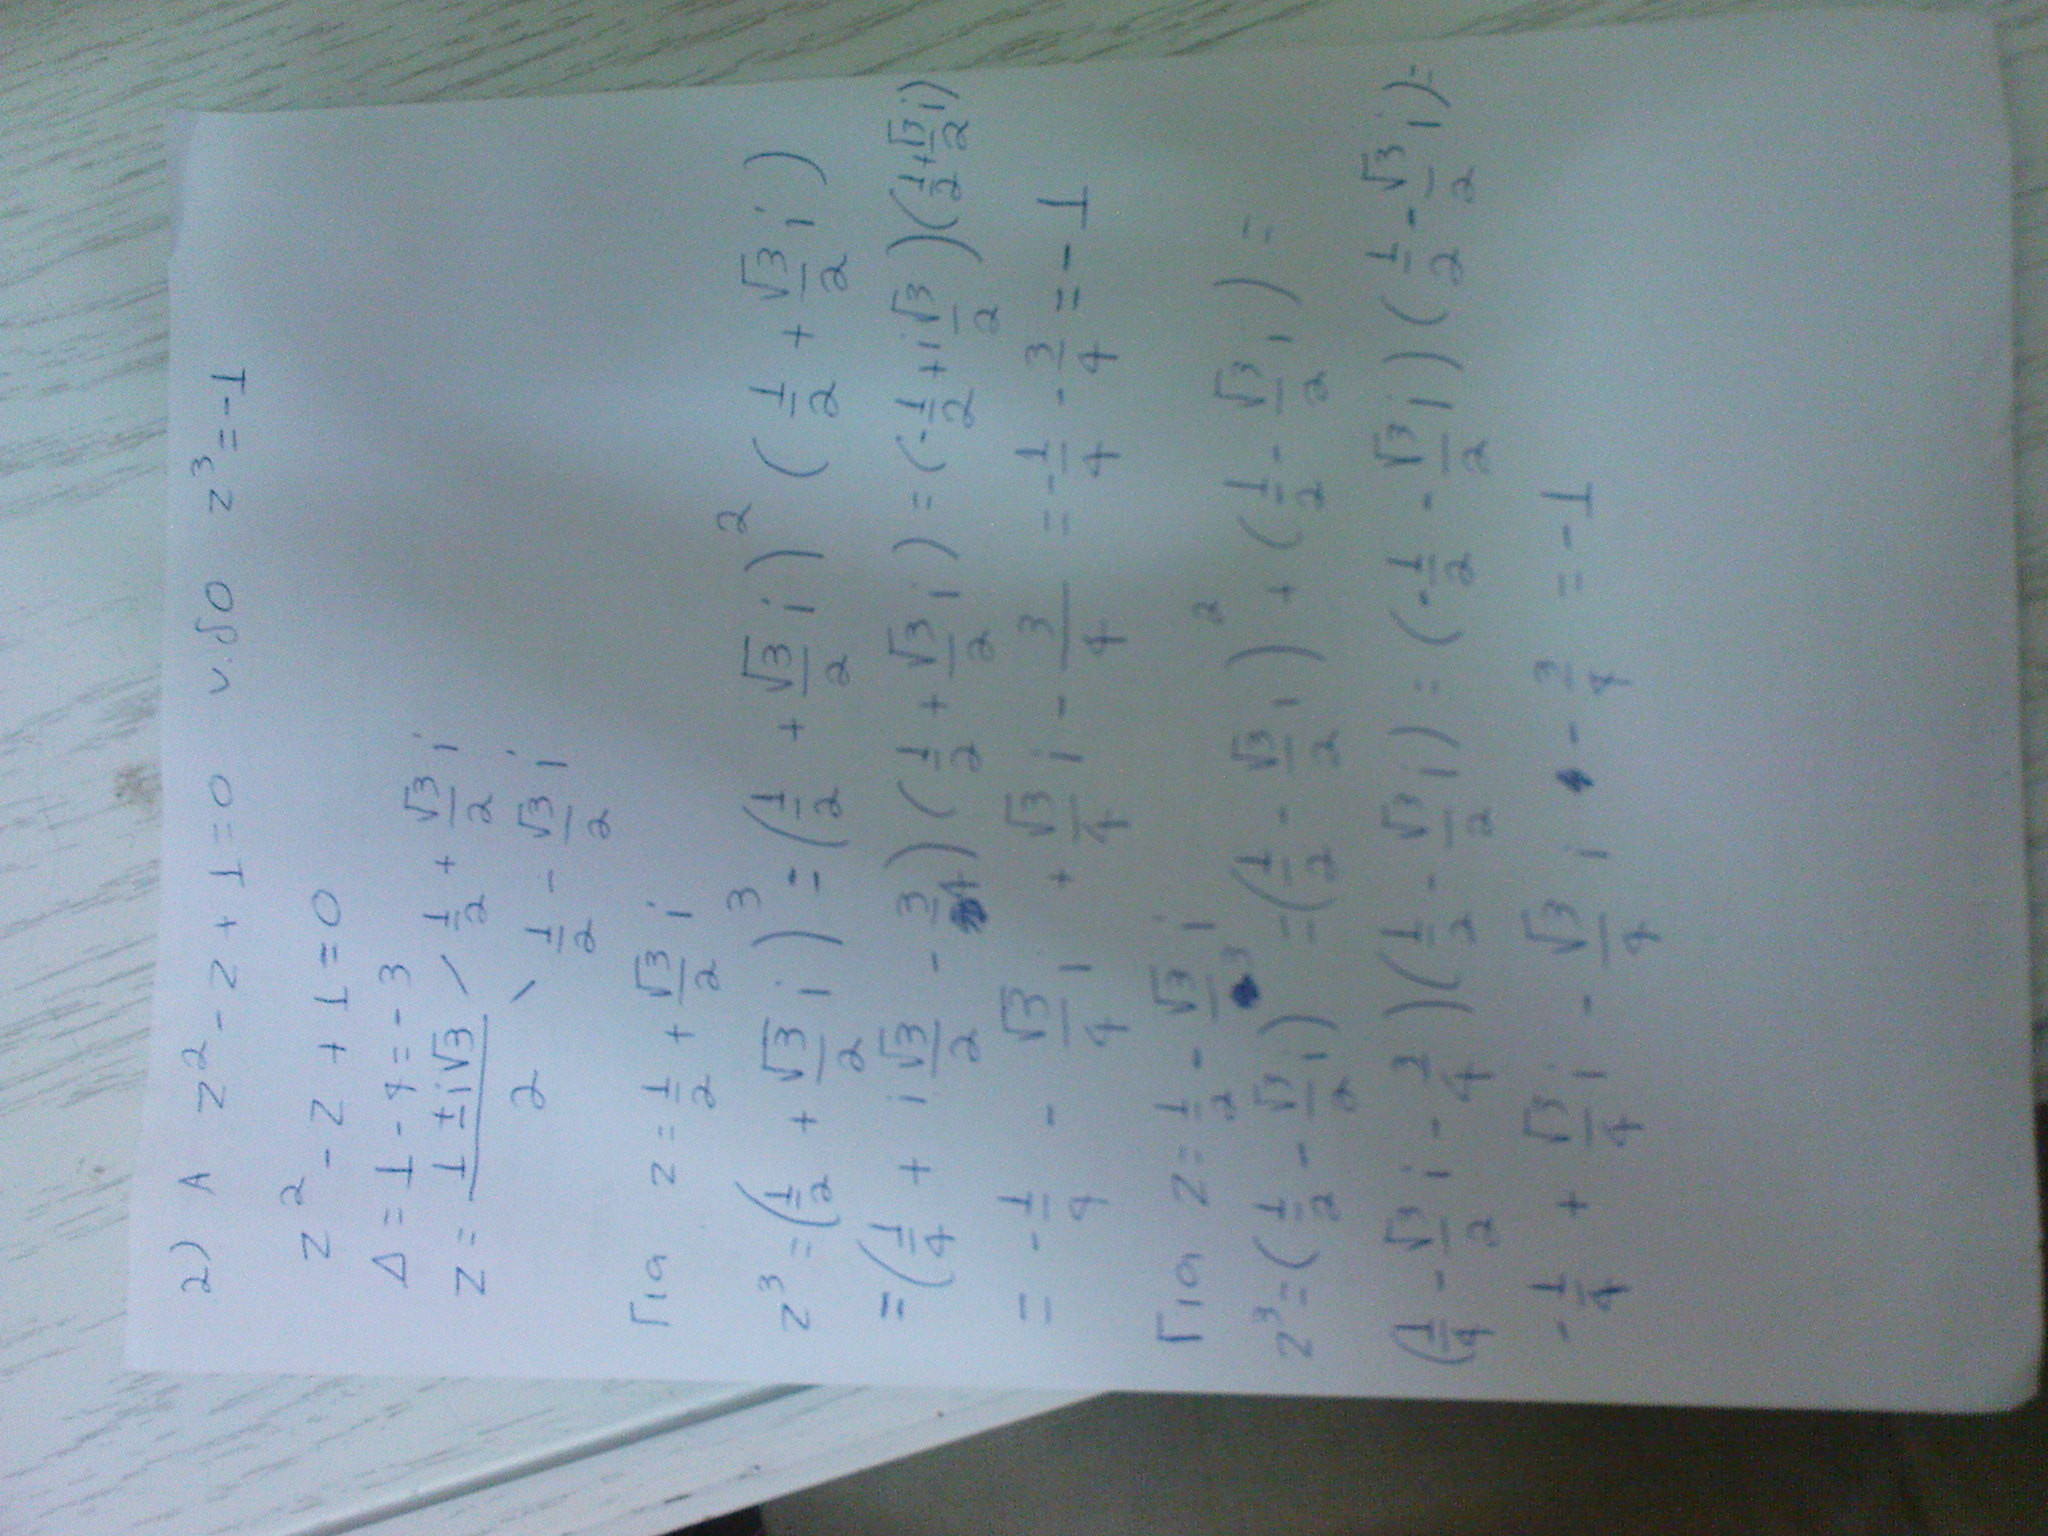 2) Α z² - z + 1 = 0 ν.δ ο z³ = -1
z² - z + 1 = 0
Δ = 1 - 4 = -3
z = (1 ± i√3)/2 / 1/2 + √3/2 i
\ 1/2 - √3/2 i
Για z = 1/2 + √3/2 i
z³ = (1/2 + √3/2 i)³ = (1/2 + √3/2 i)² (1/2 + √3/2 i)
= (1/4 + i √3/2 - 3/4)(1/2 + √3/2 i) = (-1/2 + i √3/2)(1/2 + √3/2 i)
= -1/4 - √3/4 i + √3/4 i - 3/4 = -1/4 - 3/4 = -1
Για z = 1/2 - √3/2 i
z³ = (1/2 - √3/2 i)³ = (1/2 - √3/2 i)² + (1/2 - √3/2 i) =
(1/4 - √3/2 i - 3/4)(1/2 - √3/2 i) = (-1/2 - √3/2 i)(1/2 - √3/2 i) =
-1/4 + √3/4 i - √3/4 i - 3/4 = -1